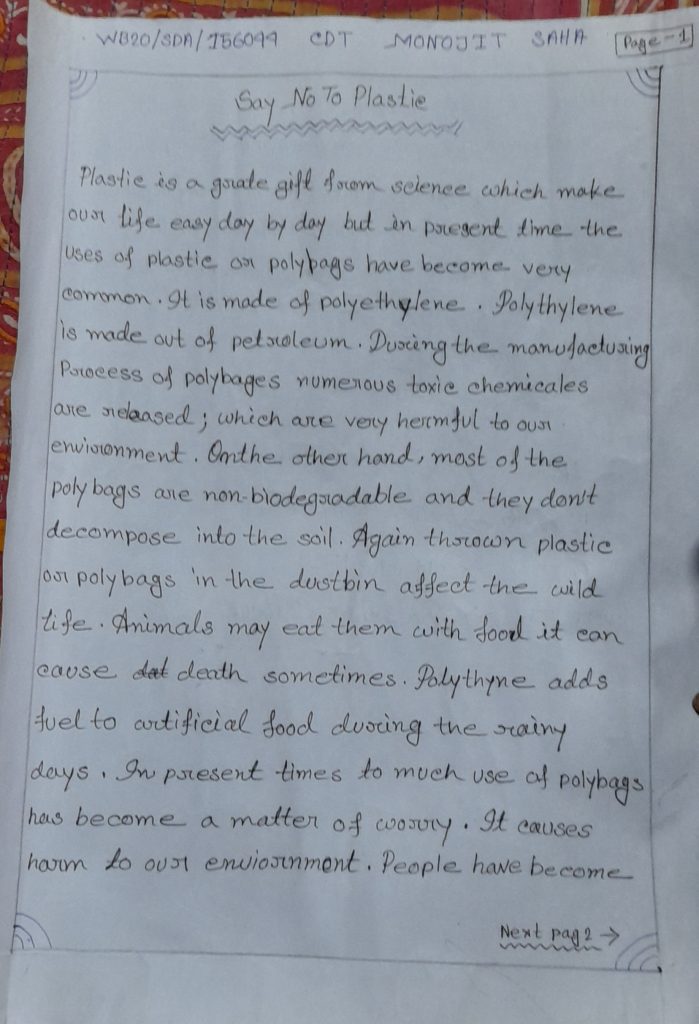 WB20/SDA/156099 CDT MONOJIT SAHA Page-1
Say No To Plastic
Plastic is a grate gift from science which make
our life easy day by day but in present time the
uses of plastic or polybags have become very
common. It is made of polyethylene. Polythylene
is made out of petroleum. During the manufacturing
Process of polybages numerous toxic chemicales
are released; which are very hermful to our
enviornment. Onthe other hand, most of the
poly bags are non-biodegradable and they don't
decompose into the soil. Again thrown plastic
or polybags in the dustbin affect the wild
life. Animals may eat them with food it can
cause dat death sometimes. Polythyne adds
fuel to artificial food during the rainy
days. In present times to much use of polybags
has become a matter of worry. It causes
harm to our enviornment. People have become
Next pag 2 →